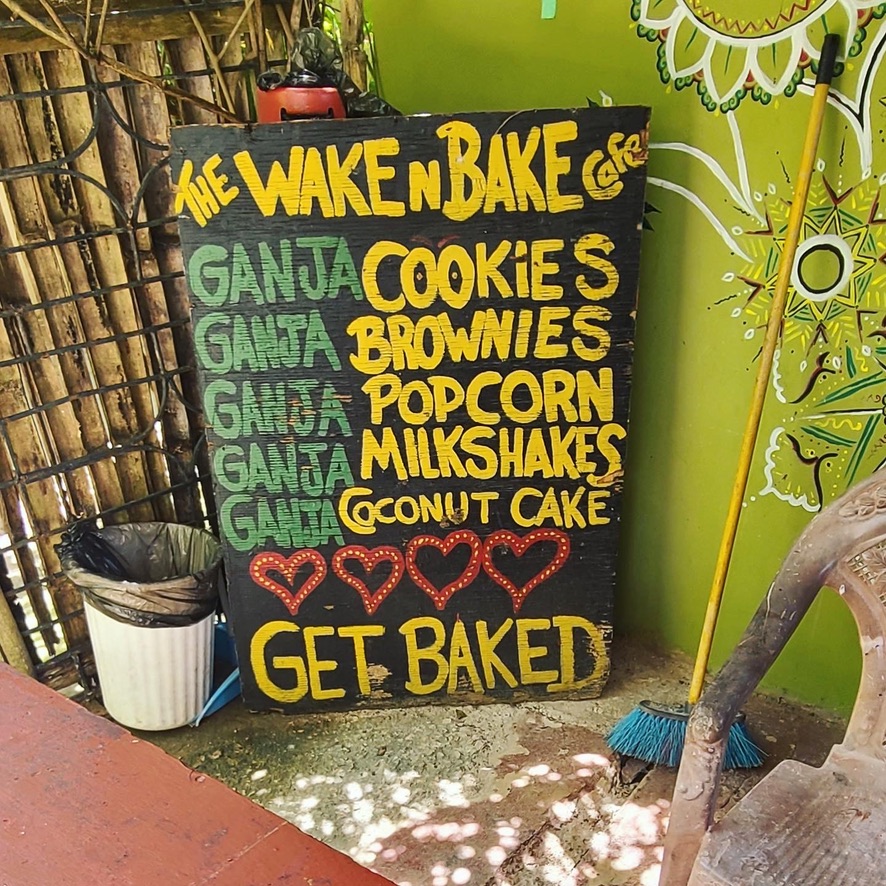 THE WAKE N BAKE Cafe
GANJA COOKIES
GANJA BROWNIES
GANJA POPCORN
GANJA MILKSHAKES
GANJA COCONUT CAKE
GET BAKED